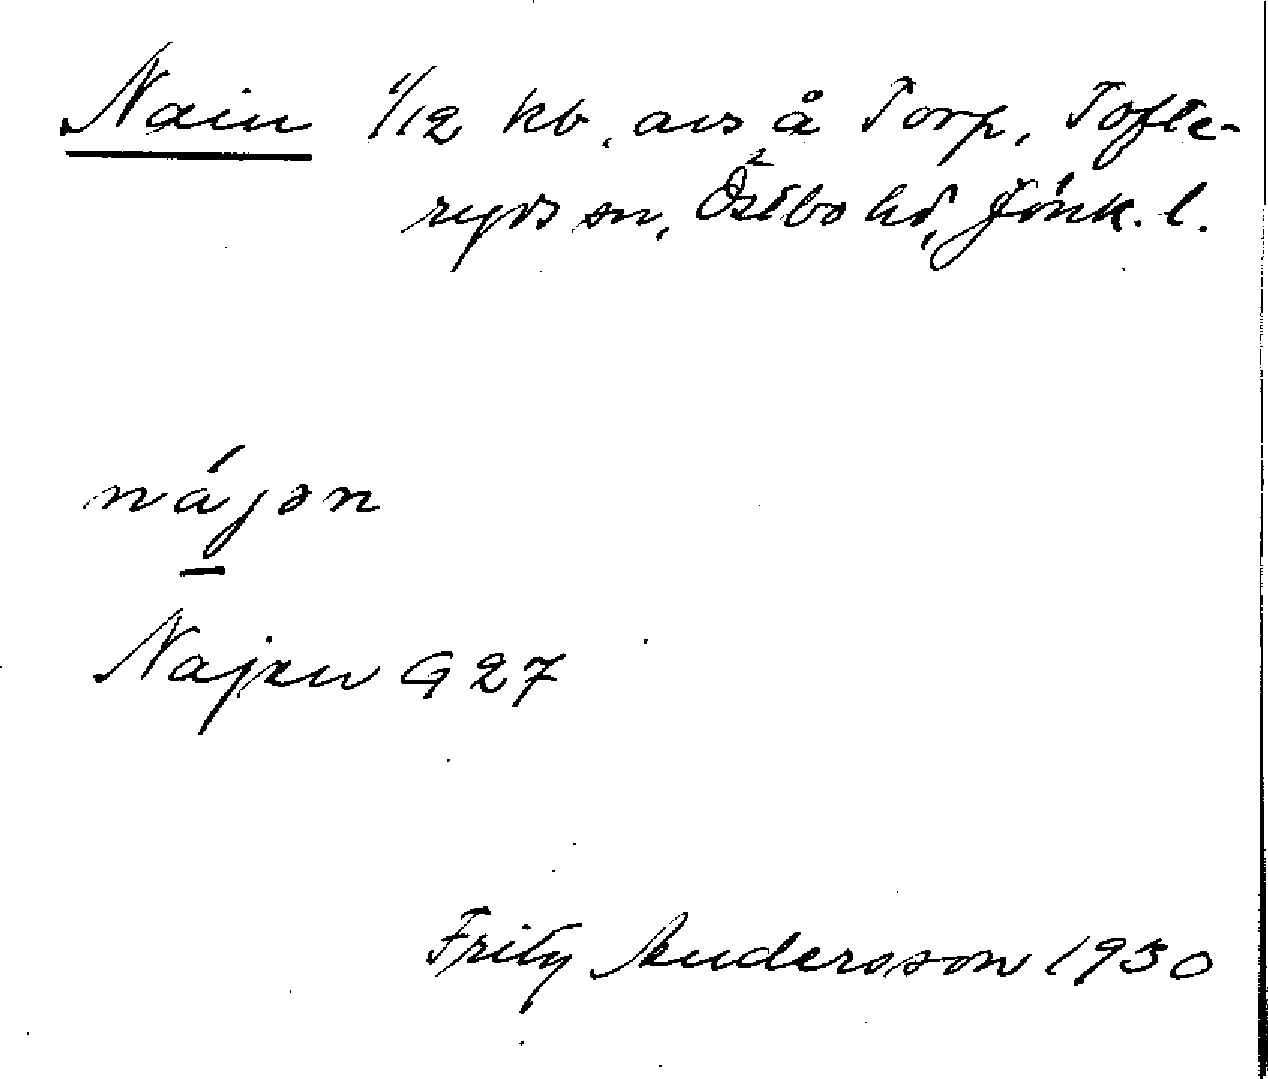 Nain 1/12 kb. avs å Torp, Tofte-
ryds sn, Östbo hd, Jönk. l.
nájən
Najen G 27
Fritz Andersson 1930